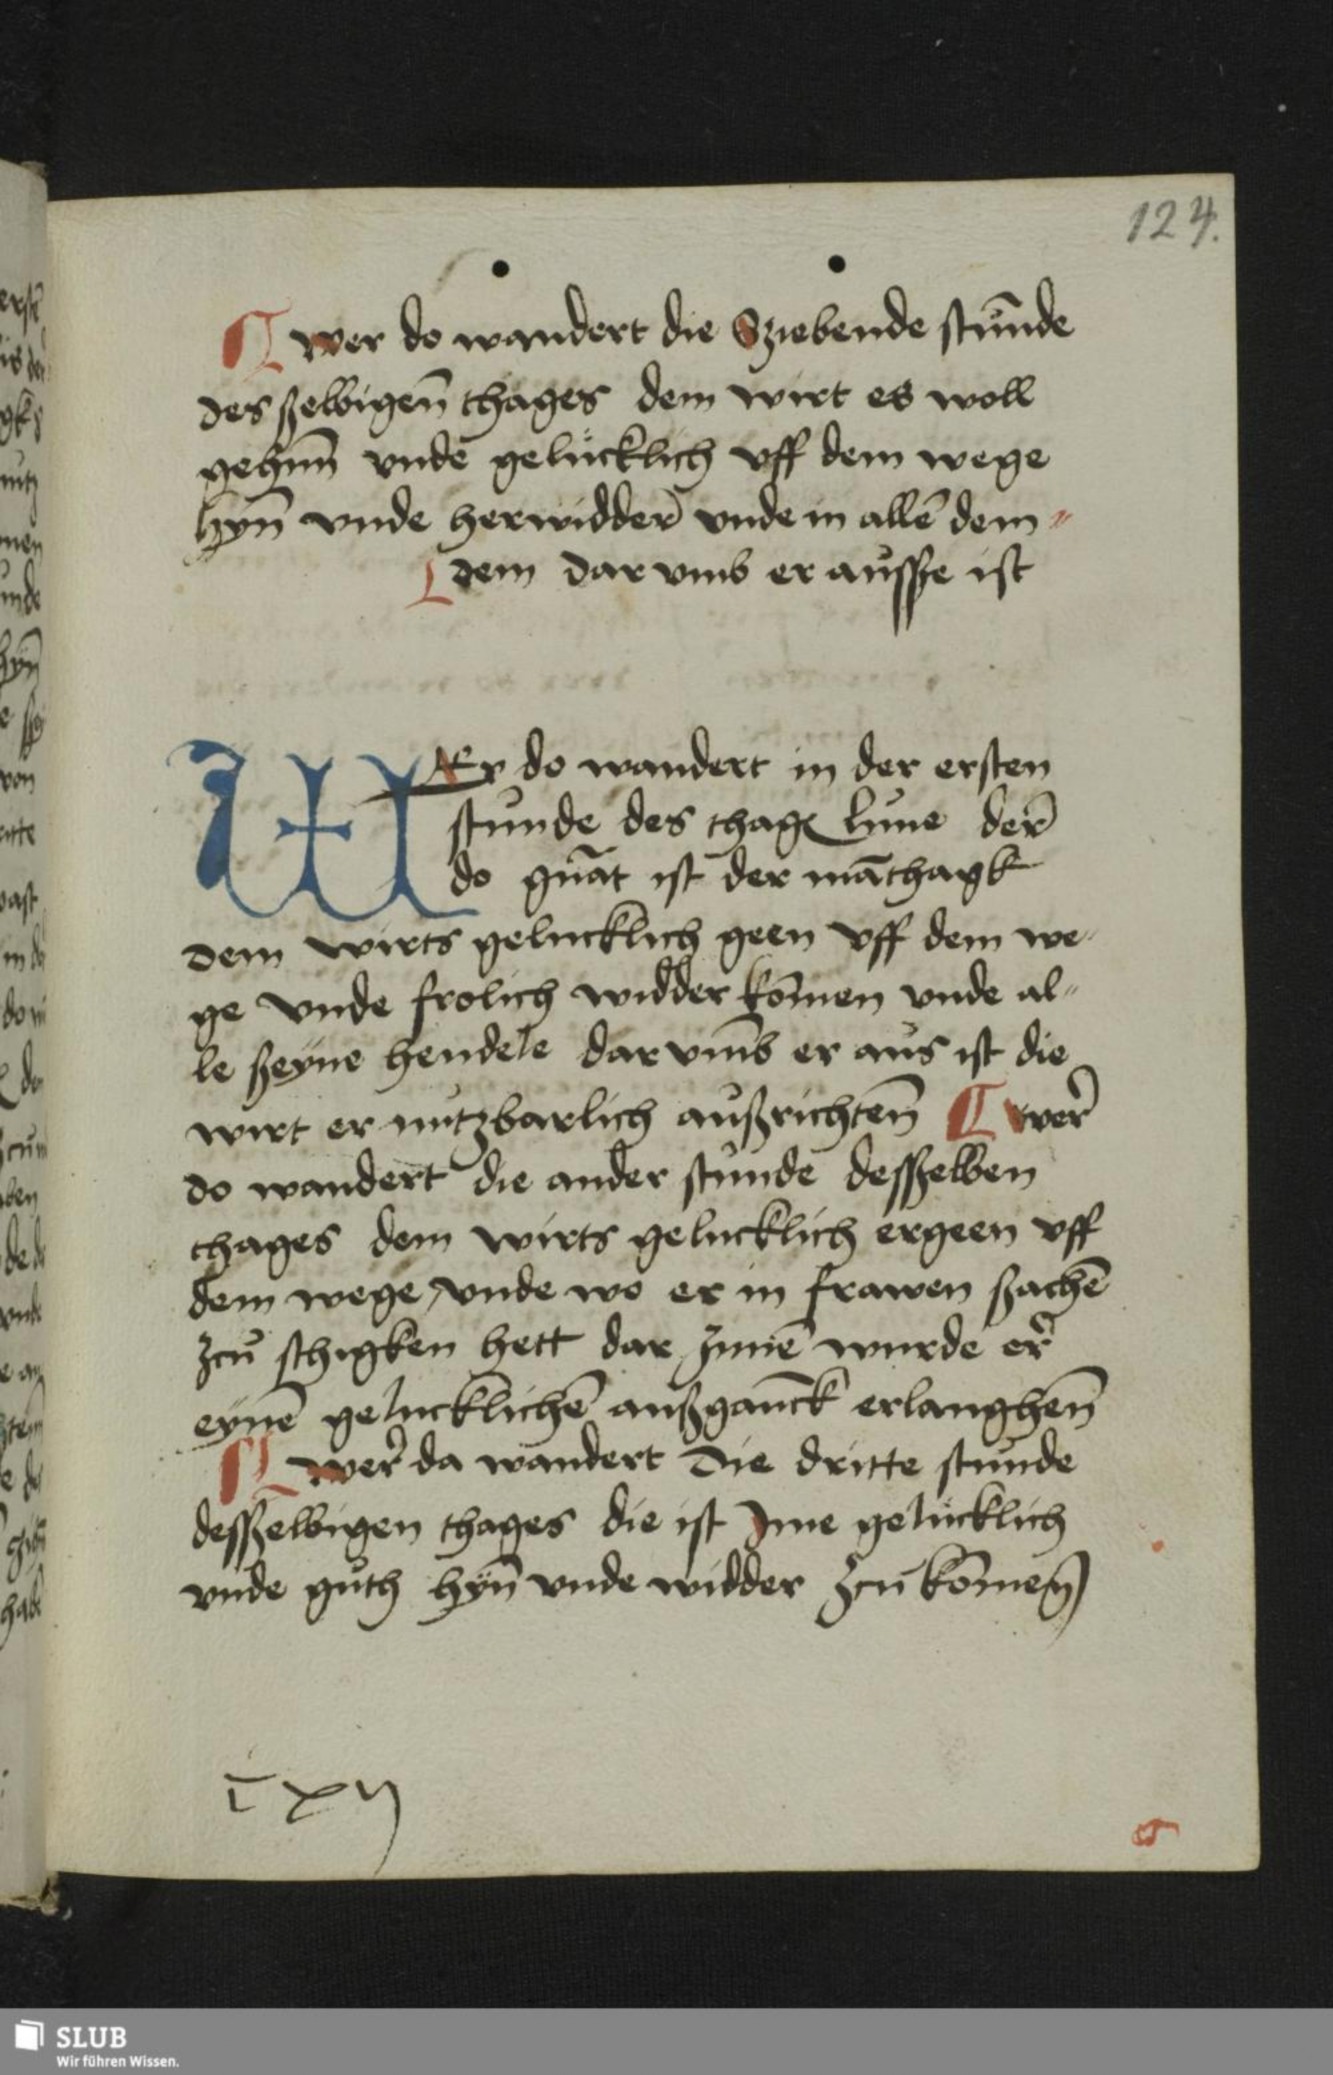 124.
¶ wer do wandert die Sziebende stūnde
des ßelbigen̄ thages dem wirt es woll
gehnn̄ vnde gelücklich vff dem wege
hyn̄ vnde herwidder̄ vnde in allē dem
dem dar vmb er ausße ist
WEr do wandert in der ersten
stunde des thagꝭ lune der̄
do gnāt ist der māthagk
dem wirts gelucklich geen vff dem we-
ge vnde frolich widder kōmen vnde al-
le ßeyne hendele dar vm̄b er aus ist die
wirt er nutzbarlich außrichten̄ ¶ wer
do wandert die ander stunde desßelben
thages dem wirts gelucklich ergeen vff
dem wege / vnde wo er in frawen ßachē
zcu schigken hett dar Innē wurde er
eynē gelucklichē außgan̄ck erlanghen̄
¶ wer da wandert die dritte stunde
desßelbigen thages die ist Ime gelücklich
vnde guth hyn̄ vnde widder zcu kōmen
SLUB
Wir führen Wissen.